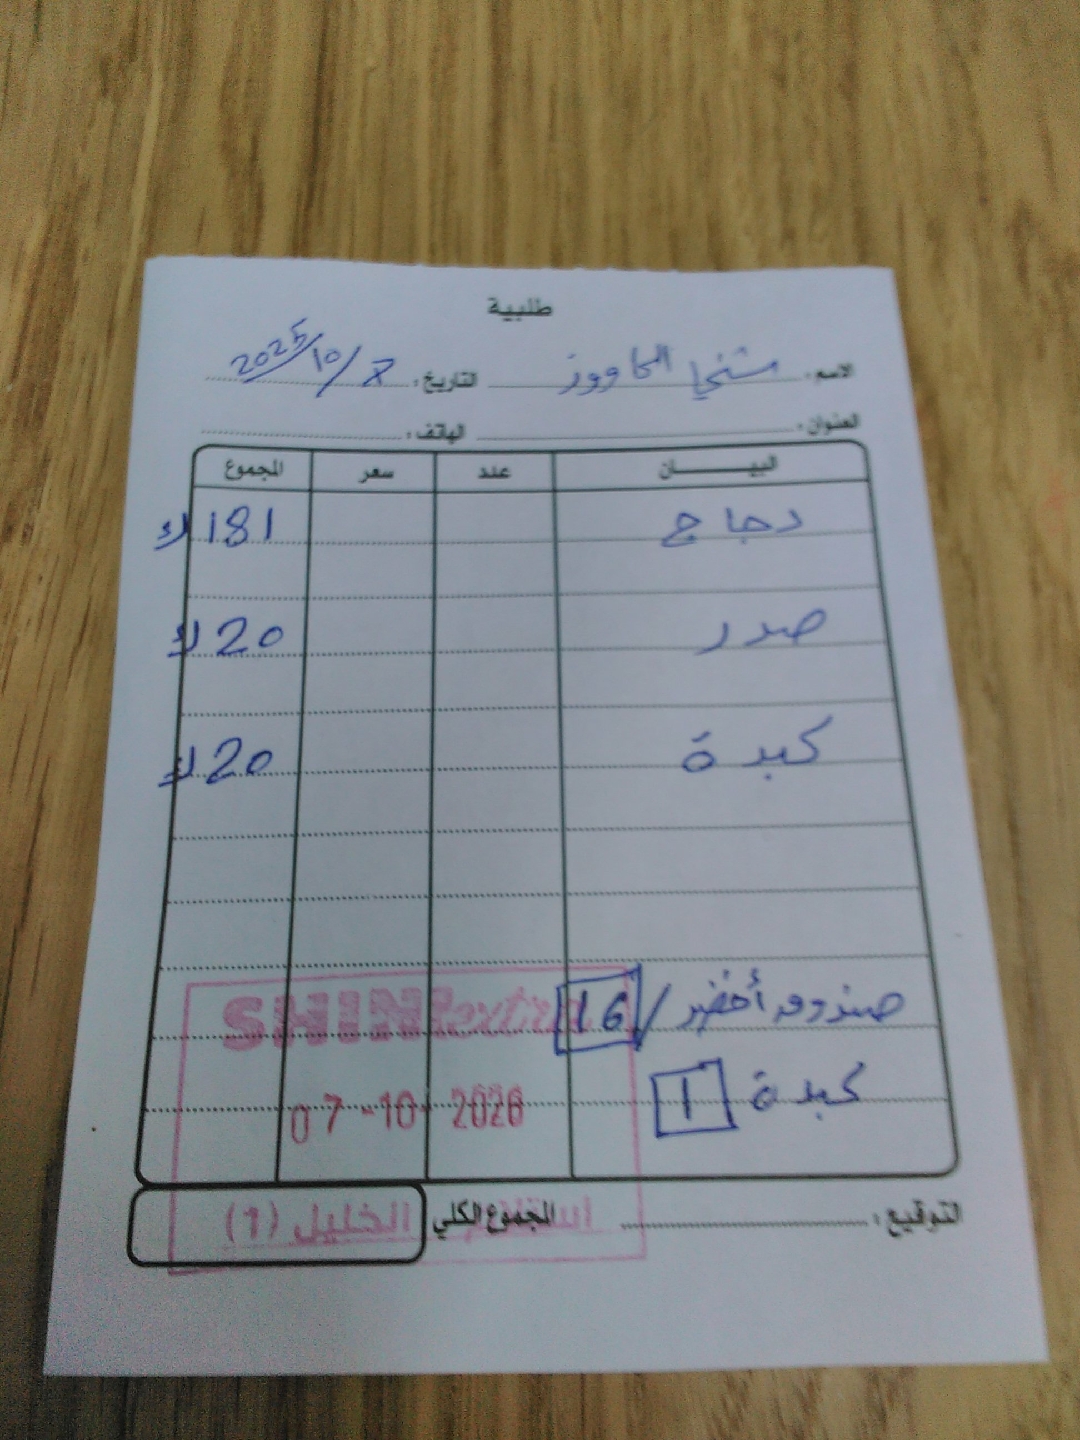 طلبية
الاسم: شني اكاووز التاريخ: 2025/10/7
العنوان: الهاتف:
البيـــــان عدد سعر المجموع
دجاج 181 ك
صدر 20 ك
كبدة 20 ك
صندوق أخضر / 16
كبدة 1
SHINI extra
07-10-2026
التوقيع: المجموع الكلي
الخليل (1)